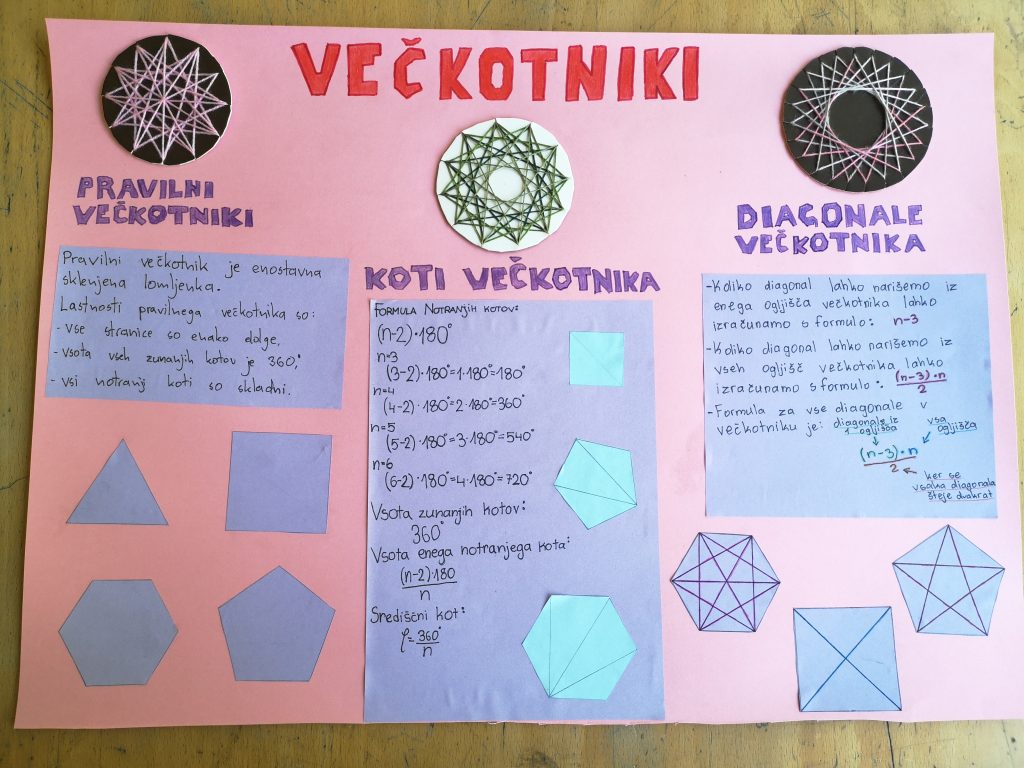 VEČKOTNIKI
PRAVILNI
VEČKOTNIKI
Pravilni večkotnik je enostavna
sklenjena lomljenka.
Lastnosti pravilnega večkotnika so:
- vse stranice so enako dolge,
- vsota vseh zunanjih kotov je 360°,
- vsi notranji koti so skladni.
KOTI VEČKOTNIKA
FORMULA NOTRANJIH KOTOV:
(n-2)·180°
n=3
(3-2)·180°=1·180°=180°
n=4
(4-2)·180°=2·180°=360°
n=5
(5-2)·180°=3·180°=540°
n=6
(6-2)·180°=4·180°=720°
Vsota zunanjih kotov:
360°
Vsota enega notranjega kota:
(n-2)·180
n
Središčni kot:
φ=360°
n
DIAGONALE
VEČKOTNIKA
-Koliko diagonal lahko narišemo iz
enega ogljišča večkotnika lahko
izračunamo s formulo: n-3
-Koliko diagonal lahko narišemo iz
vseh ogljišč večkotnika lahko
izračunamo s formulo:. (n-3)·n
2
-Formula za vse diagonale v
večkotniku je: diagonale iz
1 ogljišča
vsa
ogljišča
(n-3)·n
2
ker se
vsaka diagonala
šteje dvakrat